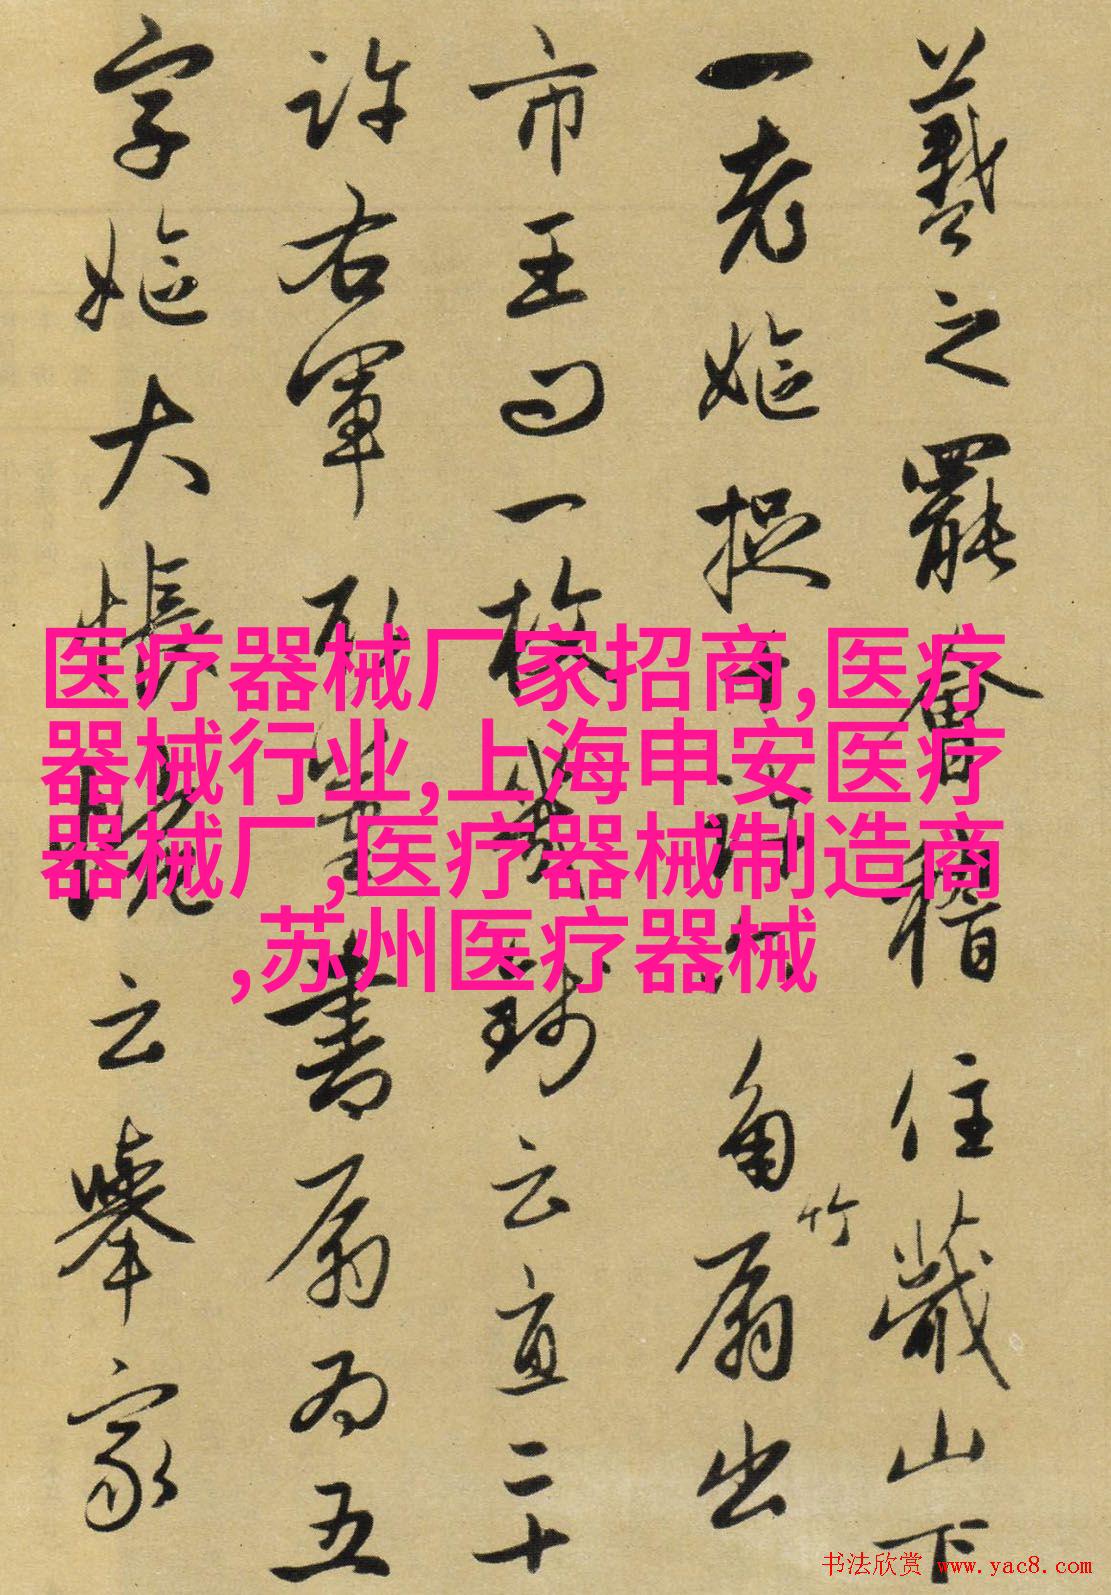 羲之罷會稽住蕺山下
一老嫗捉十許六角竹扇出
市王問一枚幾錢云直二十
許右軍取筆書扇為五
字嫗大悵惋云舉家
医疗器械厂家招商,医疗
器械行业,上海申安医疗
器械厂,医疗器械制造商
,苏州医疗器械
书法欣赏 www.yac8.com